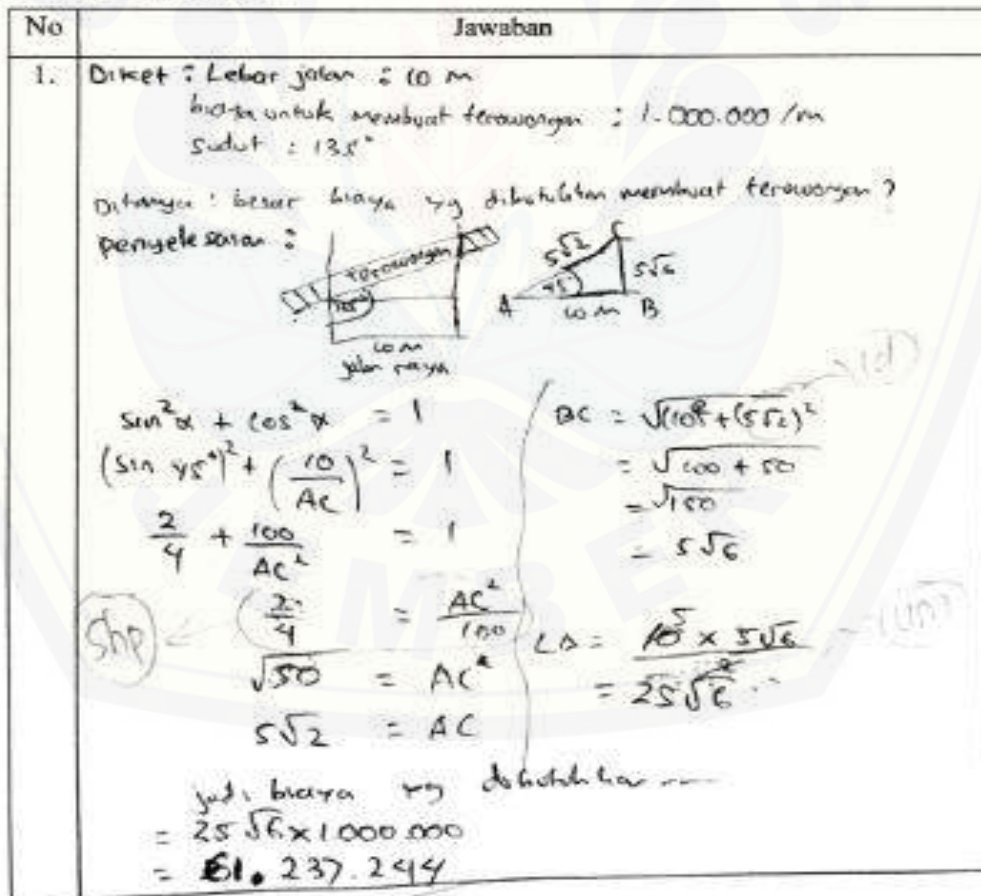 No Jawaban
1. Diket : Lebar jalan : 10 m
biaya untuk membuat terowongan : 1.000.000 /m
Sudut : 135°
Ditanya : besar biaya yg dibutuhkan membuat terowongan ?
penyelesaian :
terowongan
135°
10 m
jalan raya
C
5√2
5√6
45
A 10 m B
sin²α + cos²α = 1
(sin 45°)² + (10/AC)² = 1
2/4 + 100/AC² = 1
2/4 = AC²/100
√50 = AC²
5√2 = AC
Shp
BC = √(10² + (5√2)²
= √100 + 50
= √150
= 5√6
LΔ = 10 5 × 5√6 / 2
= 25√6
jadi biaya yg dibutuhkan
= 25√6 × 1.000.000
= 61.237.244